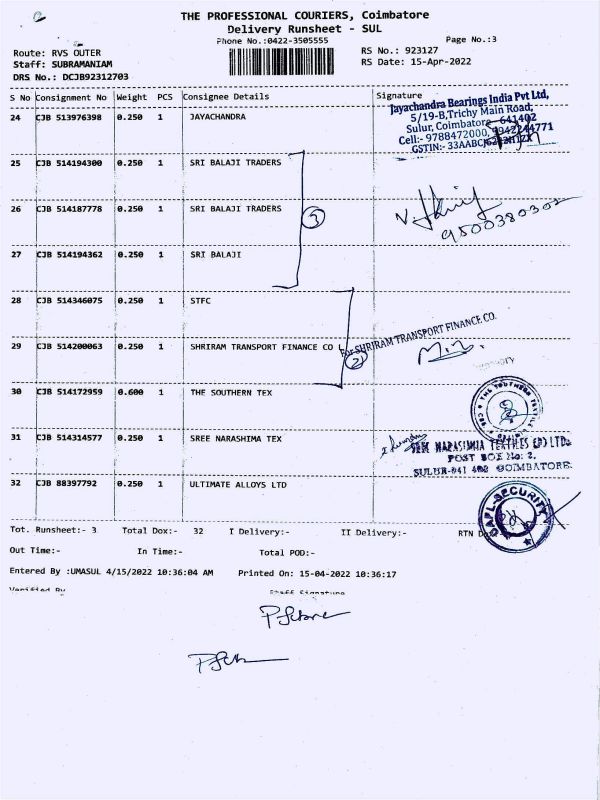 THE PROFESSIONAL COURIERS, Coimbatore
Delivery Runsheet - SUL
Phone No.:0422-3505555
Page No.:3
Route: RVS OUTER
RS No.: 923127
Staff: SUBRAMANIAM
RS Date: 15-Apr-2022
DRS No.: DCJB92312703
S No Consignment No Weight PCS Consignee Details Signature
24 CJB 513976398 0.250 1 JAYACHANDRA
Jayachandra Bearings India Pvt Ltd,
5/19-B,Trichy Main Road,
Sulur, Coimbatore - 641402
Cell:- 9788472000, 9942244771
GSTIN:- 33AABCJ
25 CJB 514194300 0.250 1 SRI BALAJI TRADERS
26 CJB 514187778 0.250 1 SRI BALAJI TRADERS
3
9500380302
27 CJB 514194362 0.250 1 SRI BALAJI
28 CJB 514346075 0.250 1 STFC
29 CJB 514200063 0.250 1 SHRIRAM TRANSPORT FINANCE CO
For SHRIRAM TRANSPORT FINANCE CO.
2
30 CJB 514172959 0.600 1 THE SOUTHERN TEX
31 CJB 514314577 0.250 1 SREE NARASHIMA TEX
SREE NARASIMHA TEXTILES (P) LTD.
POST BOX No: 2,
SULUR-641 402 COIMBATORE.
32 CJB 88397792 0.250 1 ULTIMATE ALLOYS LTD
UAPL-SECURITY
Tot. Runsheet:- 3 Total Dox:- 32 I Delivery:- II Delivery:- RTN
Out Time:- In Time:- Total POD:-
Entered By :UMASUL 4/15/2022 10:36:04 AM Printed On: 15-04-2022 10:36:17
Verified By Staff Signature